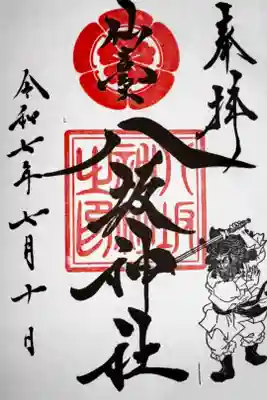 奉拝
八坂神社
令和七年七月十日